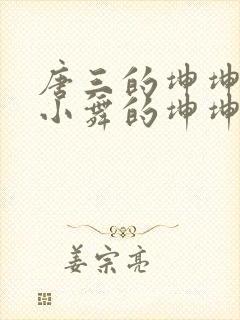 唐三的坤坤
小舞的坤坤
姜宗亮